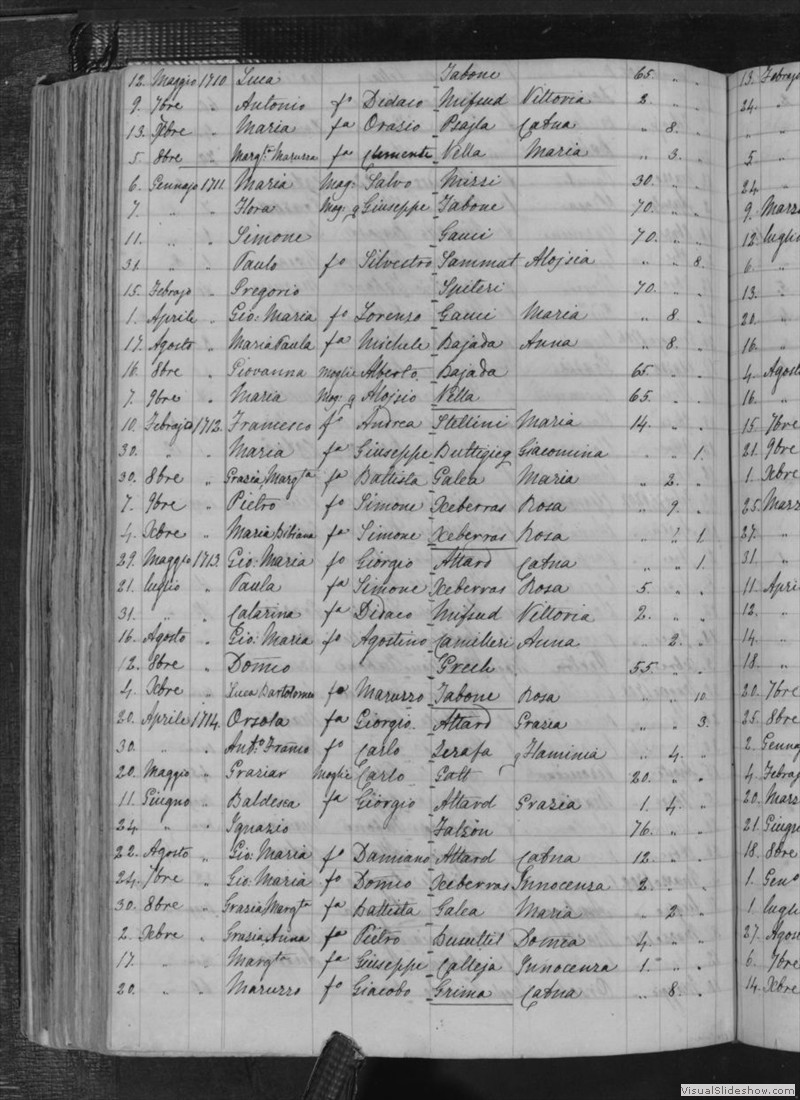 12. Maggio 1710. Luca Tabone 65. " .
9. 7bre " Antonio fo Didaco Mifsud Vittoria 2. " .
13. Xbre " Maria fa Orasio Psajla Catna " 8. .
5. 8bre " Margta Maruzza fa Clemente Vella Maria " 3. .
6. Gennajo 1711. Maria Mag: Salvo Mizzi 30. " .
7. " " Flora Mog: q Giuseppe Tabone 70. " .
11. " " Simone Gauci 70. " .
31. " " Paulo fo Silvestro Sammut Alojsia " " 8.
15. Febrajo " Gregorio Spiteri 70. " .
1. Aprile " Gio: Maria fo Lorenzo Gauci Maria " 8. "
17. Agosto " Maria Paula fa Michele Bajada Anna " 8. "
16. 8bre " Giovanna moglie Alberto Bajada 65. " .
7. 9bre " Maria Mog: q Alojsio Vella 65. " .
10. Febrajo 1712. Francesco fo Andrea Stellini Maria 14. " .
30. " " Maria fa Giuseppe Buttigieg Giacomina " " 1.
30. 8bre " Grazia Margta fa Battista Galea Maria " 2. "
7. 9bre " Pietro fo Simone Xeberras Rosa " 9. "
4. Xbre " Maria Bibiana fa Simone Xeberras Rosa " " 1.
29. Maggio 1713. Gio: Maria fo Giorgio Attard Catna " " 1.
21. luglio " Paula fa Simone Xeberras Rosa 5. " .
31. " " Catarina fa Didaco Mifsud Vittoria 2. " .
16. Agosto " Gio: Maria fo Agostino Camilleri Anna " 2. "
12. 8bre " Domco Grech 55. " .
4. Xbre " Luca Bartolomeo fo Maruzzo Tabone Rosa " " 10.
20. Aprile 1714. Orsola fa Giorgio Attard Grazia " " 3.
30. " " Anto Franco fo Carlo Zerafa q Flaminia " 4. "
20. Maggio " Graziar Moglie Carlo Gatt 20. " "
11. Giugno " Baldesca fa Giorgio Attard Grazia 1. 4. "
24. " " Ignazio Falzon 76. " .
22. Agosto " Gio: Maria fo Damiano Attard Catna 12. " .
24. 7bre " Gio: Maria fo Domco Xeberras Innocenza 2. " .
30. 8bre " Grazia Margta fa Battista Galea Maria " 2. "
2. Xbre " Grazia Anna fa Pietro Busuttil Domca 4. " "
17. " " Margta fa Giuseppe Calleja Innocenza 1. " .
20. " " Maruzzo fo Giacobo Grima Catna " 8. .
13. Febrajo
24. "
" "
5 "
24. "
9. Marzo
12. luglio
6. "
13. "
20. "
16. "
4. Agosto
16. "
15. 7bre
21. 9bre
1. Xbre
25. Marzo
27. "
31. "
11. Aprile
12. "
14. "
18. "
20. 7bre
25. 8bre
2. Gennajo
4. Febrajo
20. Marzo
21. Giugno
18. 8bre
1. Geno
1. luglio
27. Agosto
6. 7bre
14. Xbre
VisualSlideshow.com